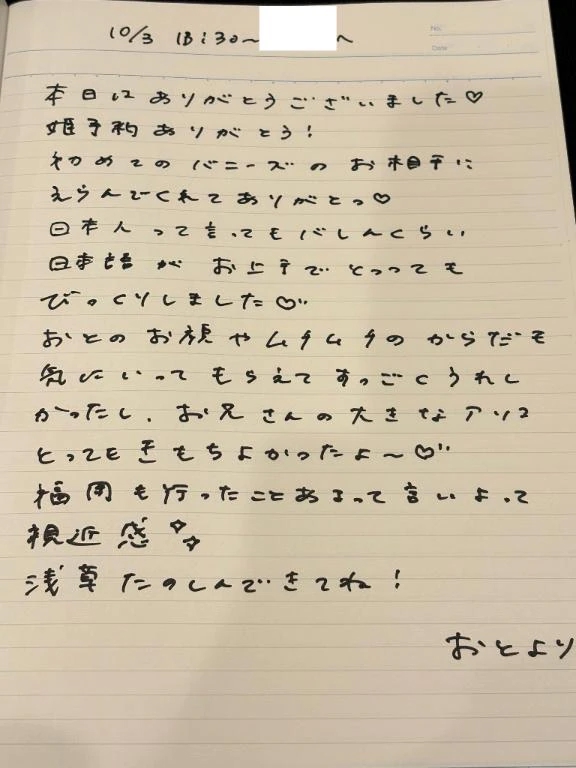 10/3 18:30〜 へ
No.
Date
本日はありがとうございました♡
姫予約ありがとう!
初めてのバニーズのお相手に
えらんでくれてありがとっ♡
日本人って言ってもバレんくらい
日本語がお上手でとっっても
びっくりしました♡
おとのお顔やムチムチのからだも
気にいってもらえてすっごくうれし
かったし、お兄さんの大きなアソコ
とってもきもちよかったよ〜♡
福岡も行ったことあるって言いよって
親近感
浅草たのしんできてね!
おとより